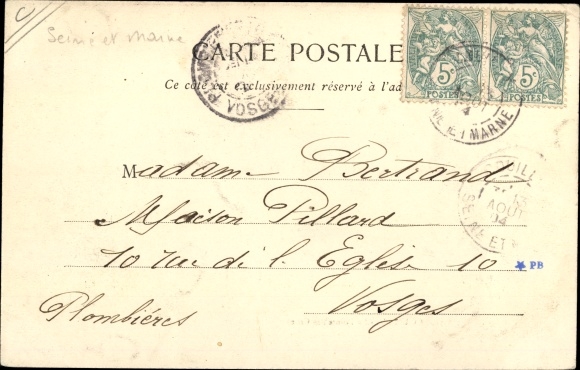 Seine et Marne
CARTE POSTALE
Ce côté est exclusivement réservé à l'ad
5c 5c
POSTES POSTES
VOSGES
NE ET MARNE
AOUT
04
SEINE ET
Madame Bertrand
Maison Pillard
10 rue de l'Eglise 10
PB
Vosges
Plombières